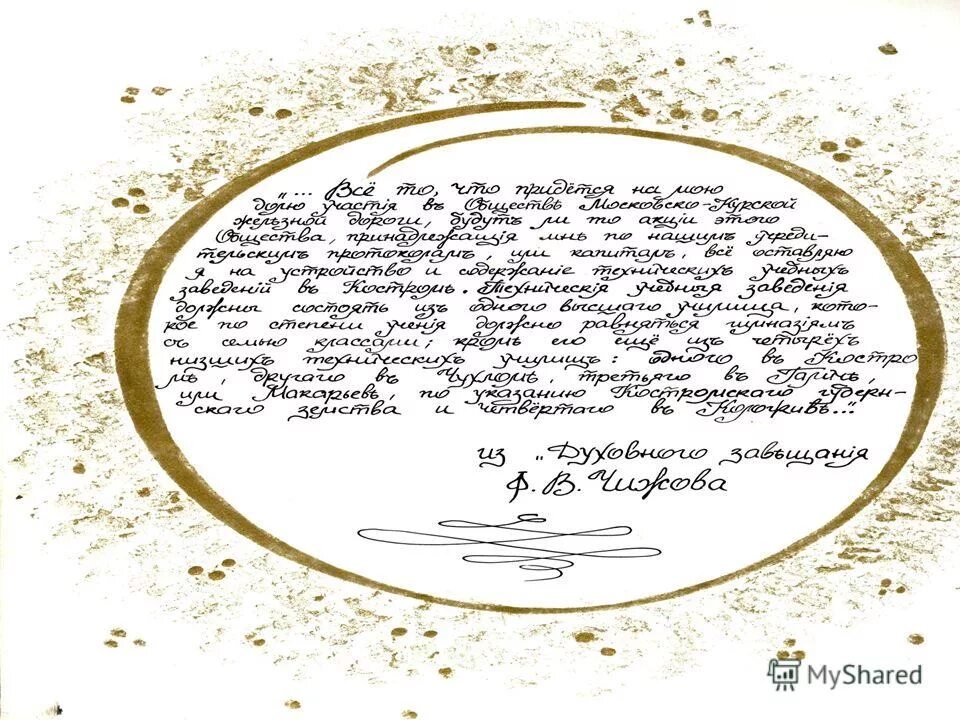 „... Всё то, что придётся на мою
долю участія въ Обществѣ Московско-Курской
желѣзной дороги, будутъ ли то акціи этого
Общества, принадлежащія мнѣ по нашимъ учреди-
тельскимъ протоколамъ, или капиталъ, всё оставляю
я на устройство и содержаніе техническихъ учебныхъ
заведеній въ Костромѣ. Техническія учебныя заведенія
должны состоять изъ одного высшаго училища, кото-
рое по степени ученія должно равняться гимназіямъ
съ семью классами; кромѣ его ещё изъ четырёхъ
низшихъ техническихъ училищъ: одного въ Костро
мѣ, другаго въ Чухломѣ, третьяго въ Галичѣ,
или Макарьевѣ, по указанію Костромскаго губерн-
скаго земства и четвёртаго въ Кологривѣ..."
из „Духовного завѣщанія
Ф. В. Чижова
MyShared